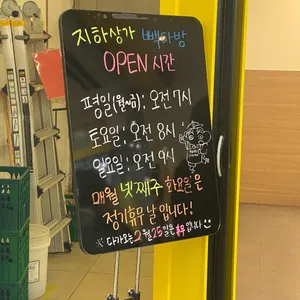 지하상가 빽다방
OPEN 시간
평일(월~금): 오전 7시
토요일: 오전 8시
일요일: 오전 9시
매월 넷째주 화요일은
정기휴무 날 입니다!
※ 다가오는 2월 25일은 휴무 입니다